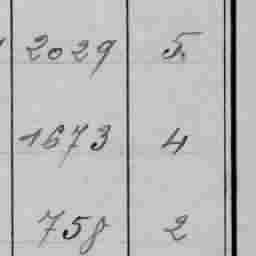 2029 5.
1673 4
758 2